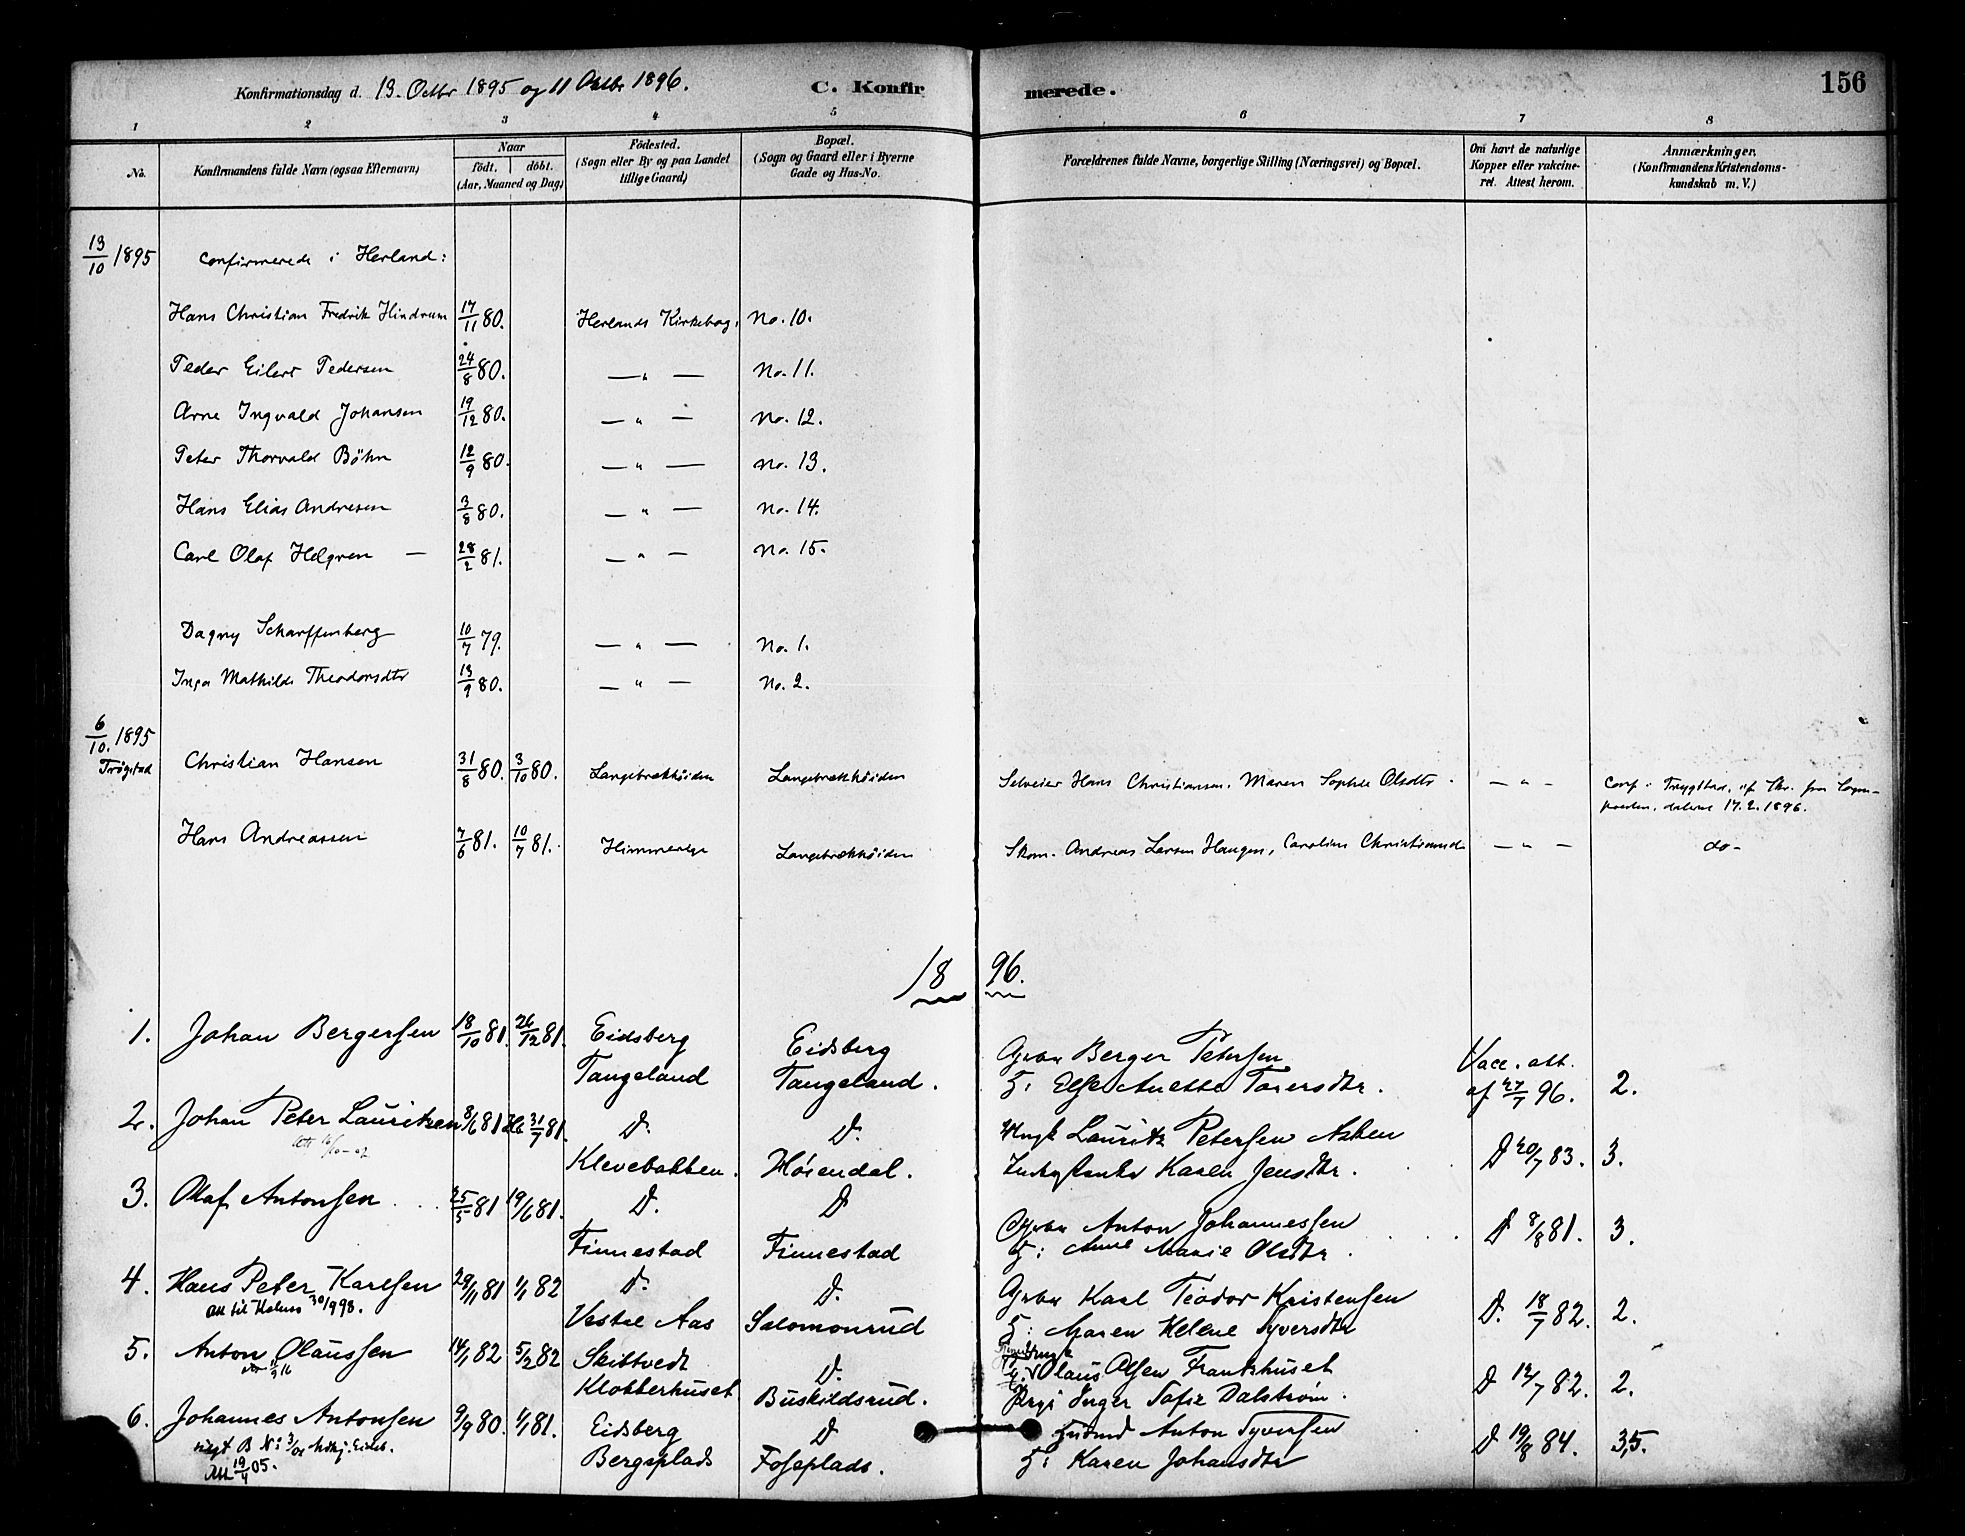 Konfirmationsdag d. 13. Octbr 1895 og 11 Octbr 1896. C. Konfirmerede. 156
1 2 3 4 5 6 7 8
No. Konfirmandens fulde Navn (ogsaa Efternavn) Naar födt. döbt. (Aar, Maaned og Dag) Födested. (Sogn eller By og paa Landet tillige Gaard) Bopæl. (Sogn og Gaard eller i Byerne Gade og Hus-No. Forældrenes fulde Navne, borgerlige Stilling (Næringsvei) og Bopæl. Om havt de naturlige Kopper eller vakcineret. Attest herom. Anmærkninger. (Konfirmandens Kristendomskundskab m. V.)
13/10 1895 Confirmerede i Herland:
Hans Christian Fredrik Hindrum 17/11 80. Herlands Kirkebog. No. 10.
Peder Eilert Pedersen 24/8 80. — " — No. 11.
Arne Ingvald Johansen 19/12 80. — " — No. 12.
Peter Thorvald Böhn 12/9 80. — " — No. 13.
Hans Elias Andresen 3/8 80. — " — No. 14.
Carl Olaf Helgren — 28/2 81. — " — No. 15.
Dagny Scharffenberg 10/7 79. — " — No. 1.
Inga Mathilde Theodorsdtr 13/9 80. — " — No. 2.
6/10. 1895
Trøgstad
Christian Hansen 31/8 80. 3/10 80. Langebrækhöiden Langebrækhöiden Selveier Hans Christiansen, Maren Sophie Olsdtr. — " — Conf. i Trygstad, dateret 17.2.1896.
Hans Andreassen 7/6 81. 10/7 81. Langebrækhöiden Skom. Andreas Larsen Haugen, Caroline — " — do—
1896.
1. Johan Bergersen 18/10 81. 26/12 81. Eidsberg Eidsberg Gbr Berger Petersen Vacc. att.
Tangeland Tangeland. H: Else Anette Torersdtr. af 27/7 96. 2.
2. Johan Peter Lauritzen 8/6 81 31/7 81. D. D. Ungk Lauritz Petersen Asken
Klevebakken. Hösendal. Karen Jensdtr. D 20/7 83. 3.
3. Olaf Antonsen 25/5 81 19/6 81. D. D Gbr Anton Johannessen D 8/8 81. 3.
Finnestad Finnestad H: Anne Marie Olsdtr.
4. Hans Peter Karlsen 29/11 81 1/1 82 D. D. Gbr Karl Teodor Kristensen D. 18/7 82. 2.
Vestre Aas Salomonrud H: Maren Helene Syversdtr
5. Anton Olaussen 14/1 82 5/2 82 Skiptvedt D. Ungk Olaus Olsen Frankhuset D 14/7 82. 2.
Klokkerhuset Buskildsrud. Pige Inger Sofie Dalstrøm.
6. Johannes Antonsen 9/9 80. 1/1 81. Eidsberg D Anton Syversen D 19/8 84. 3,5.
Bergsplads Foseplads. H: Karen Johansdtr
Att 19/4 05.